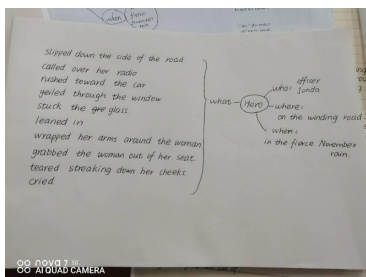 when
fierce
November
rain
slipped down the side of the road
called over her radio
rushed toward the car
yelled through the window
stuck the gre glass
leaned in
wrapped her arms around the woman
grabbed the woman out of her seat
teared streaking down her cheeks
cried
what
Hero
who:
officer
Jonda
where:
on the winding road
when:
in the fierce November
rain.
nova 7 5G
AI QUAD CAMERA